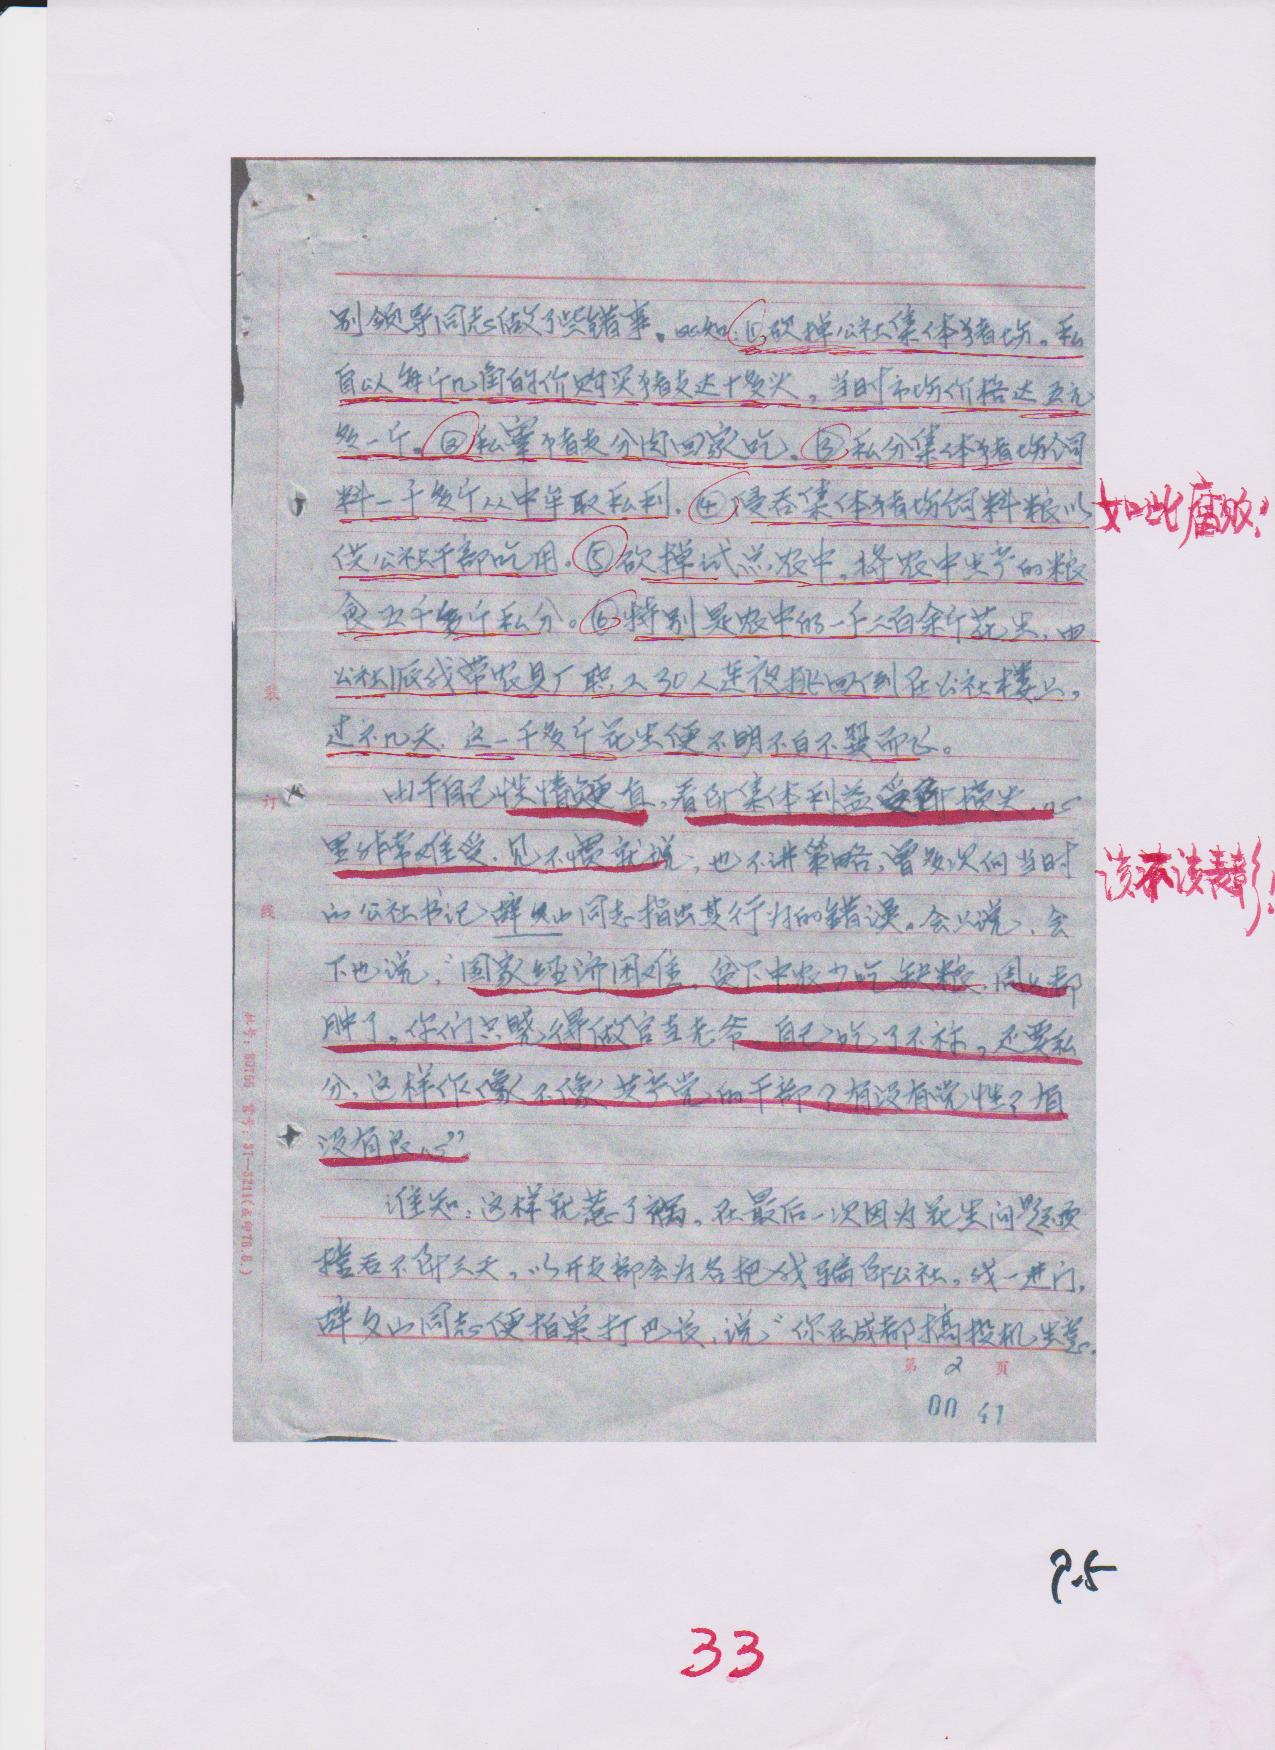 别领导同志做了些错事。比如:①砍掉公社集体猪场。私
自以每斤几角的价购买猪支达十多头,当时市场价格达五元
多一斤。②私宰猪支分肉回家吃。③私分集体猪场饲
料一千多斤从中牟取私利。④侵吞集体猪场饲料粮以
供公社干部吃用。⑤砍掉试点农中,将农中生产的粮
食五千多斤私分。⑥特别是农中的一千二百余斤花生,由
公社派我带农具厂职工30人连夜挑回个到在公社楼上,
过不几天,这一千多斤花生便不明不白不翼而飞。
由于自己性情梗直,看到集体利益受到损失,心
里非常难受,见不惯就说,也不讲策略,曾多次向当时
的公社书记薛文山同志指出其行为的错误。会上说,会
下也说,“国家经济困难,贫下中农少吃缺粮,周身都
肿了,你们只晓得做官当老爷,自己吃了不称,还要私
分,这样作像不像共产党的干部?有没有党性?有
没有良心”
谁知:这样就惹了祸。在最后一次因为花生问题顶
撞后不到三天,以开支部会为名把我骗到公社,我一进门,
薛文山同志便拍桌打巴掌,说:“你在成都搞投机生意。
第 2 页
00 41
装
订
线
如此腐败!
该不该表彰!
P.5
33